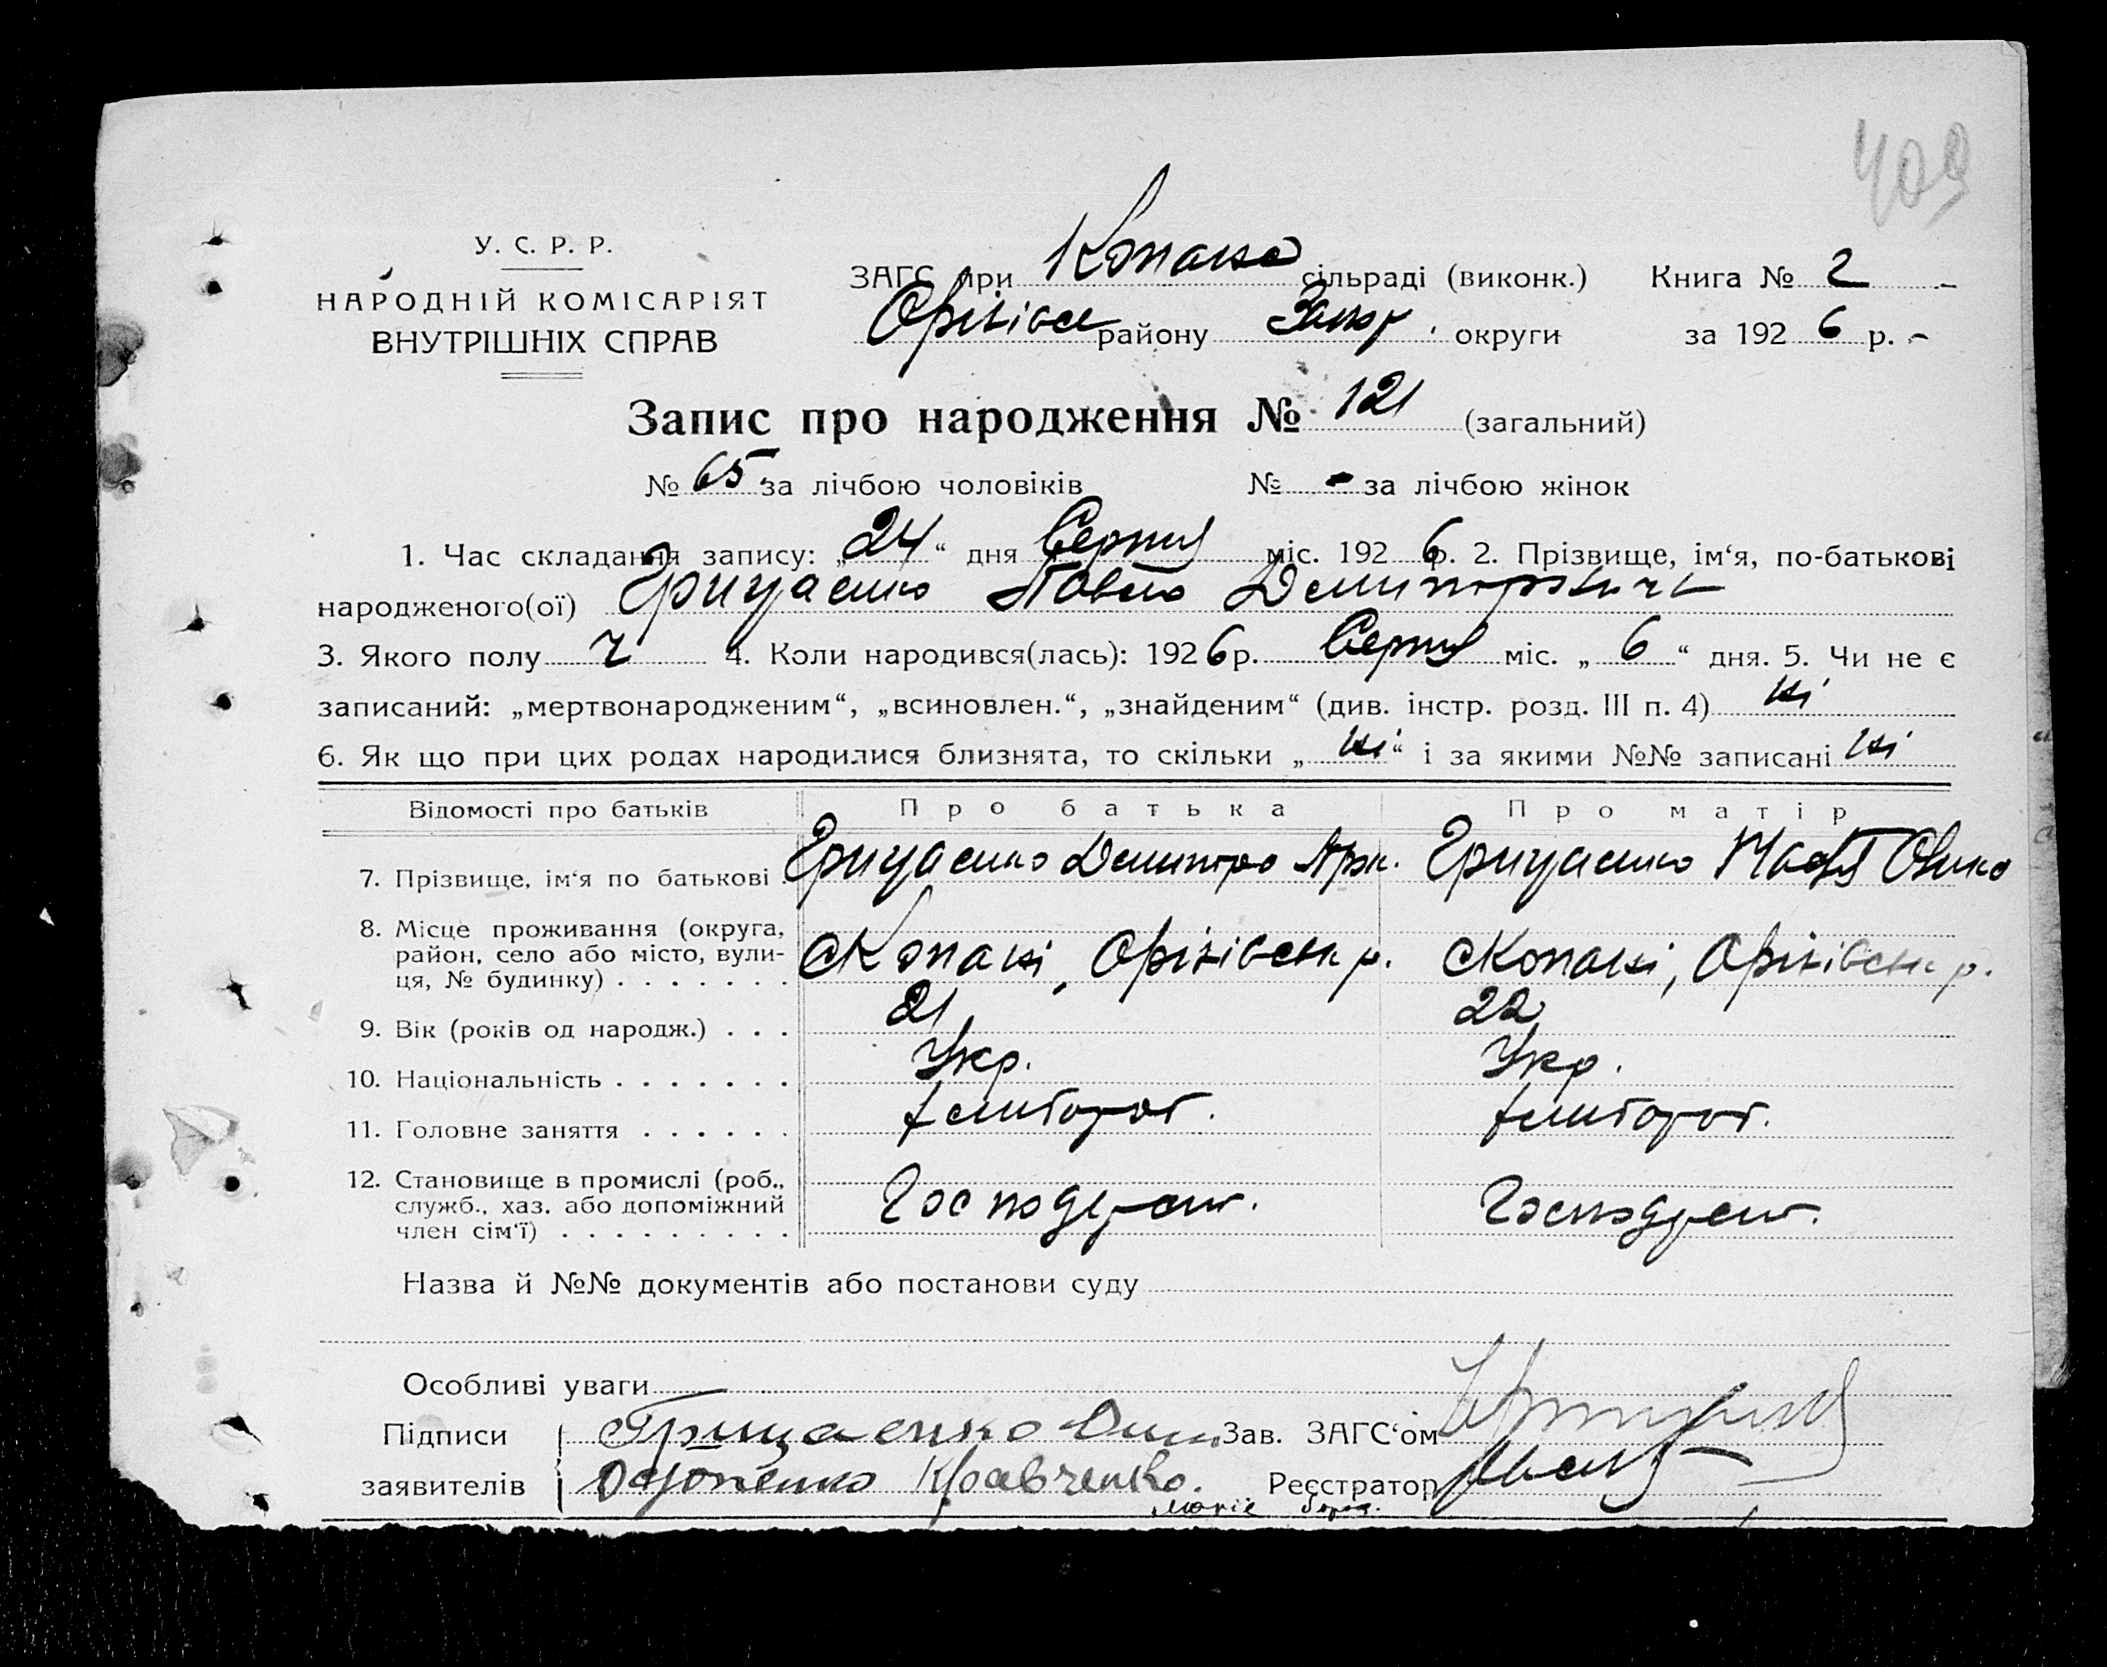 409
У. С. Р. Р.
НАРОДНІЙ КОМІСАРІЯТ
ВНУТРІШНІХ СПРАВ
ЗАГС при Копані сільраді (виконк.) Книга № 2
Оріхівськ району Запор. округи за 1926 р.
Запис про народження № 121 (загальний)
№ 65 за лічбою чоловіків № - за лічбою жінок
1. Час складання запису: „24“ дня Серпня міс. 1926 р. 2. Прізвище, ім‘я, по-батькові
народженого(ої) Грицаенко Павло Демитрович
3. Якого полу ч 4. Коли народився(лась): 1926 р. Серпня міс. „6“ дня. 5. Чи не є
записаний: „мертвонародженим“, „всиновлен.“, „знайденим“ (див. інстр. розд. III п. 4) ні
6. Як що при цих родах народилися близнята, то скільки „ні“ і за якими №№ записані ні
Відомості про батьків Про батька Про матір
7. Прізвище, ім‘я по батькові Грицаенко Демитро Грицаенко
8. Місце проживання (округа,
район, село або місто, вули-
ця, № будинку) . . . . . . . с Копані, Оріхівськ р. с Копані, Оріхівськ р.
9. Вік (років од народж.) . . . 21 22
10. Національність . . . . . . . Укр. Укр.
11. Головне заняття . . . . . .
12. Становище в промислі (роб.,
служб., хаз. або допоміжний
член сім‘ї) . . . . . . . . .
Назва й №№ документів або постанови суду
Особливі уваги
Підписи Грицаенко Зав. ЗАГС‘ом
заявителів Кравченко. Реєстратор